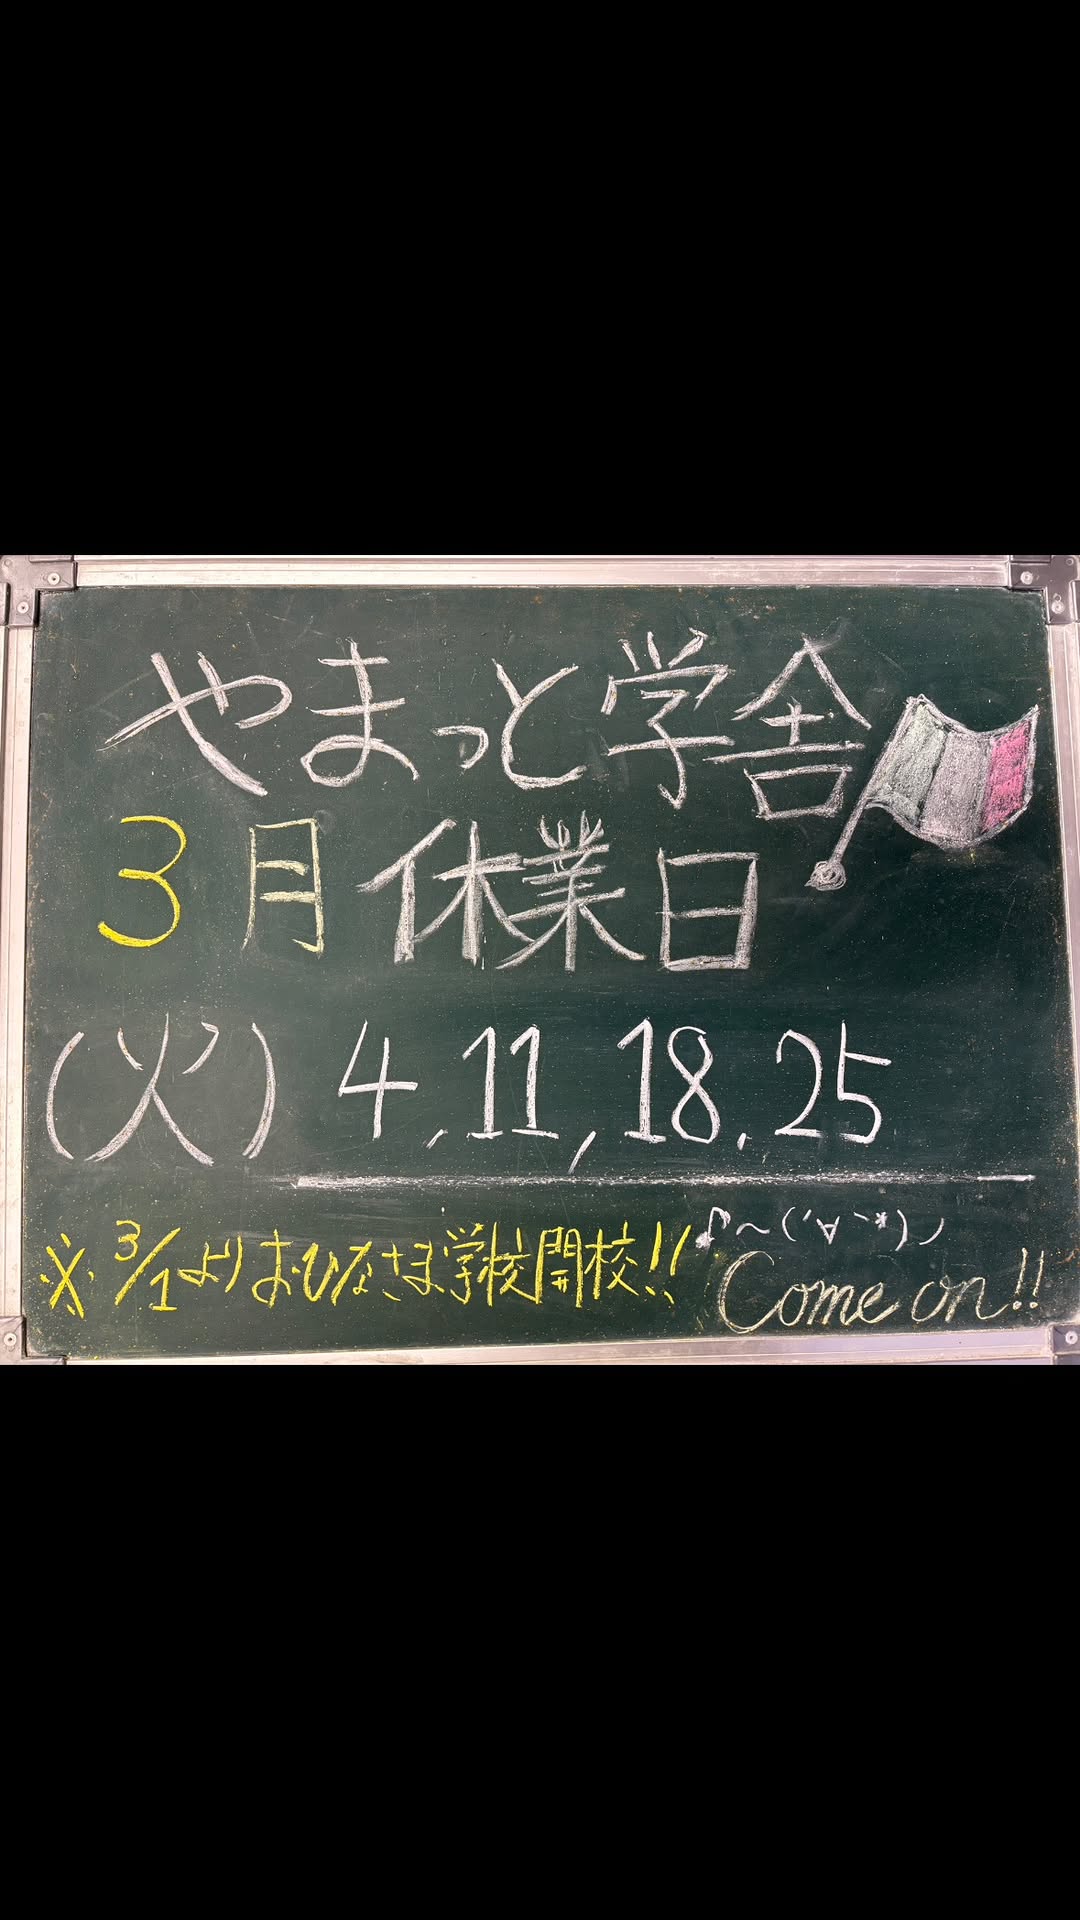 やまっと学舎
3月 休業日
(火) 4, 11, 18, 25
※ 3/1より おひなさま学校開校!!
♪~(´∀`*)ノ
Come on!!